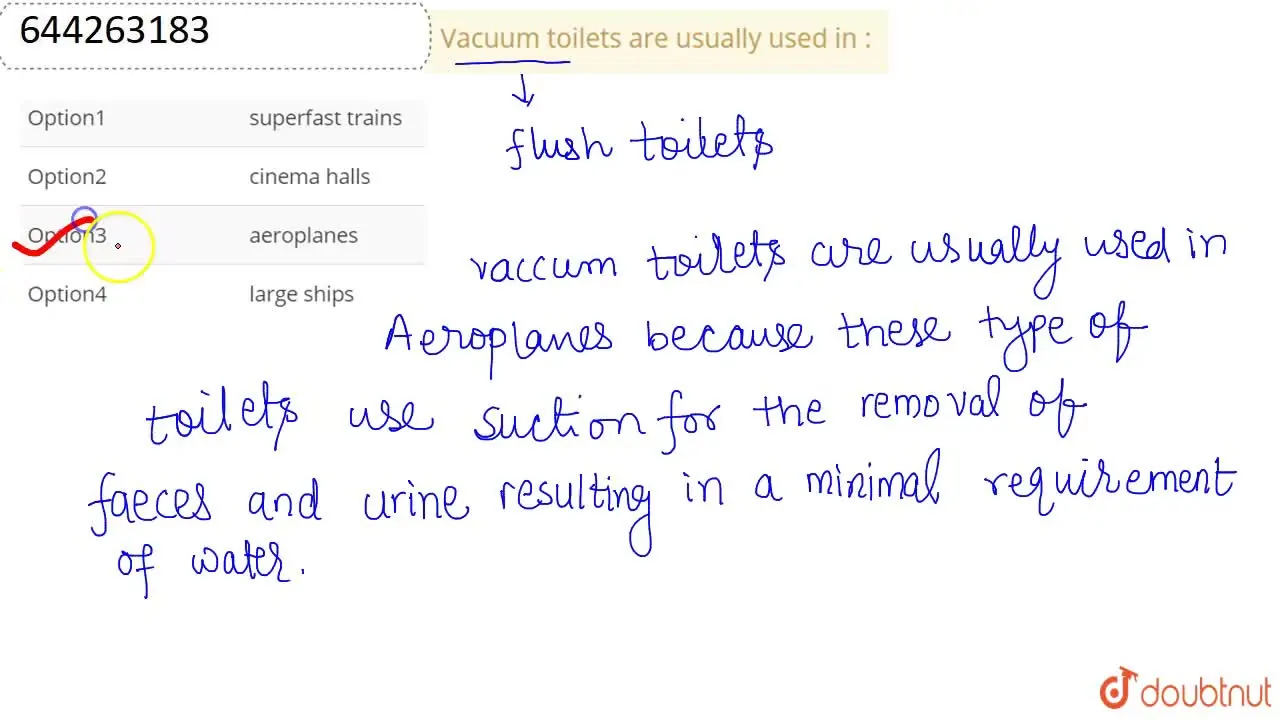 644263183
Vacuum toilets are usually used in :
flush toilets
Option1 superfast trains
Option2 cinema halls
Option3 aeroplanes
Option4 large ships
vaccum toilets are usually used in
Aeroplanes because these type of
toilets use suction for the removal of
faeces and urine resulting in a minimal requirement
of water.
doubtnut